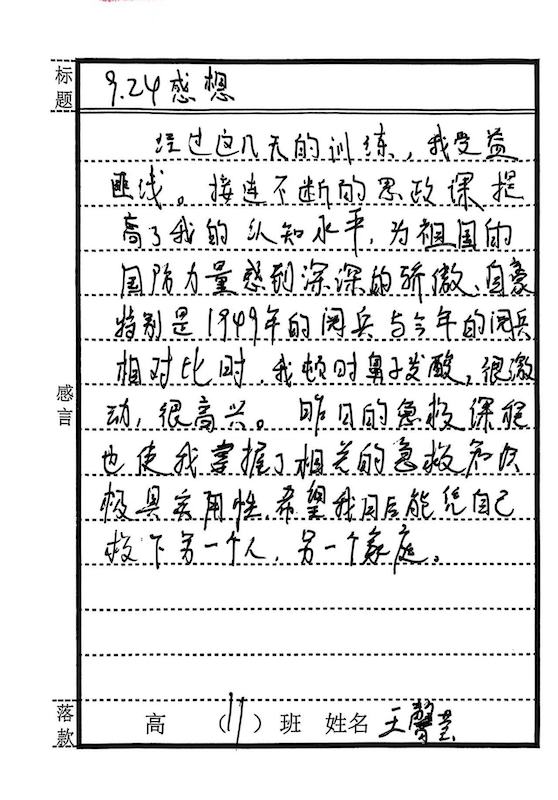 标题 9.24感想
经过这几天的训练，我受益
匪浅。接连不断的思政课提
高了我的认知水平，为祖国的
国防力量感到深深的骄傲、自豪
特别是1949年的阅兵与今年的阅兵
相对比时，我顿时鼻子发酸，很激
动，很高兴。昨日的急救课程
也使我掌握了相关的急救知识
极具实用性，希望我日后能凭自己
救下另一个人，另一个家庭。
感言
落款 高 （11）班 姓名 王馨莹